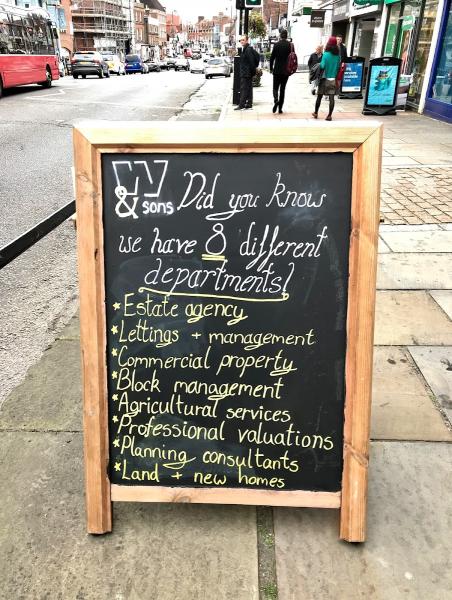 & sons Did you know
we have 8 different
departments!
*Estate agency
*Lettings + management
*Commercial property
*Block management
*Agricultural services
*Professional valuations
*Planning consultants
*Land + new homes